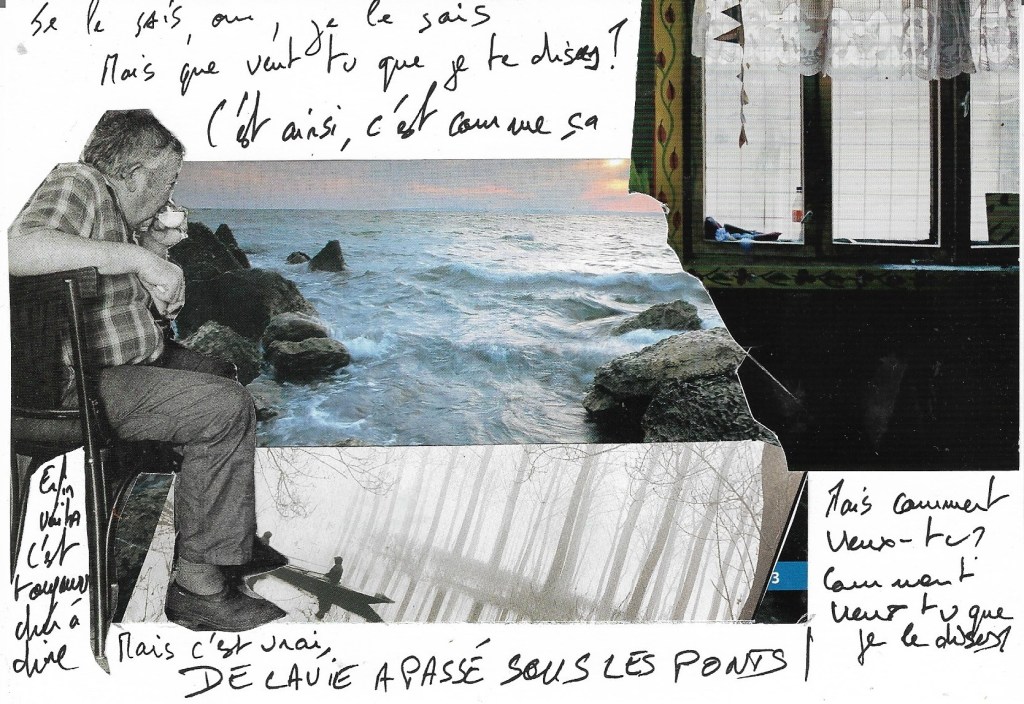 Je le sais, oui, je le sais
Mais que veut tu que je te dises?
C'est ainsi, c'est comme ça
Enfin
voilà
c'est
toujours
dur à
dire
Mais comment
veux-tu?
Comment
veux tu que
je le dises
Mais c'est vrai,
DE LA VIE A PASSÉ SOUS LES PONTS
3